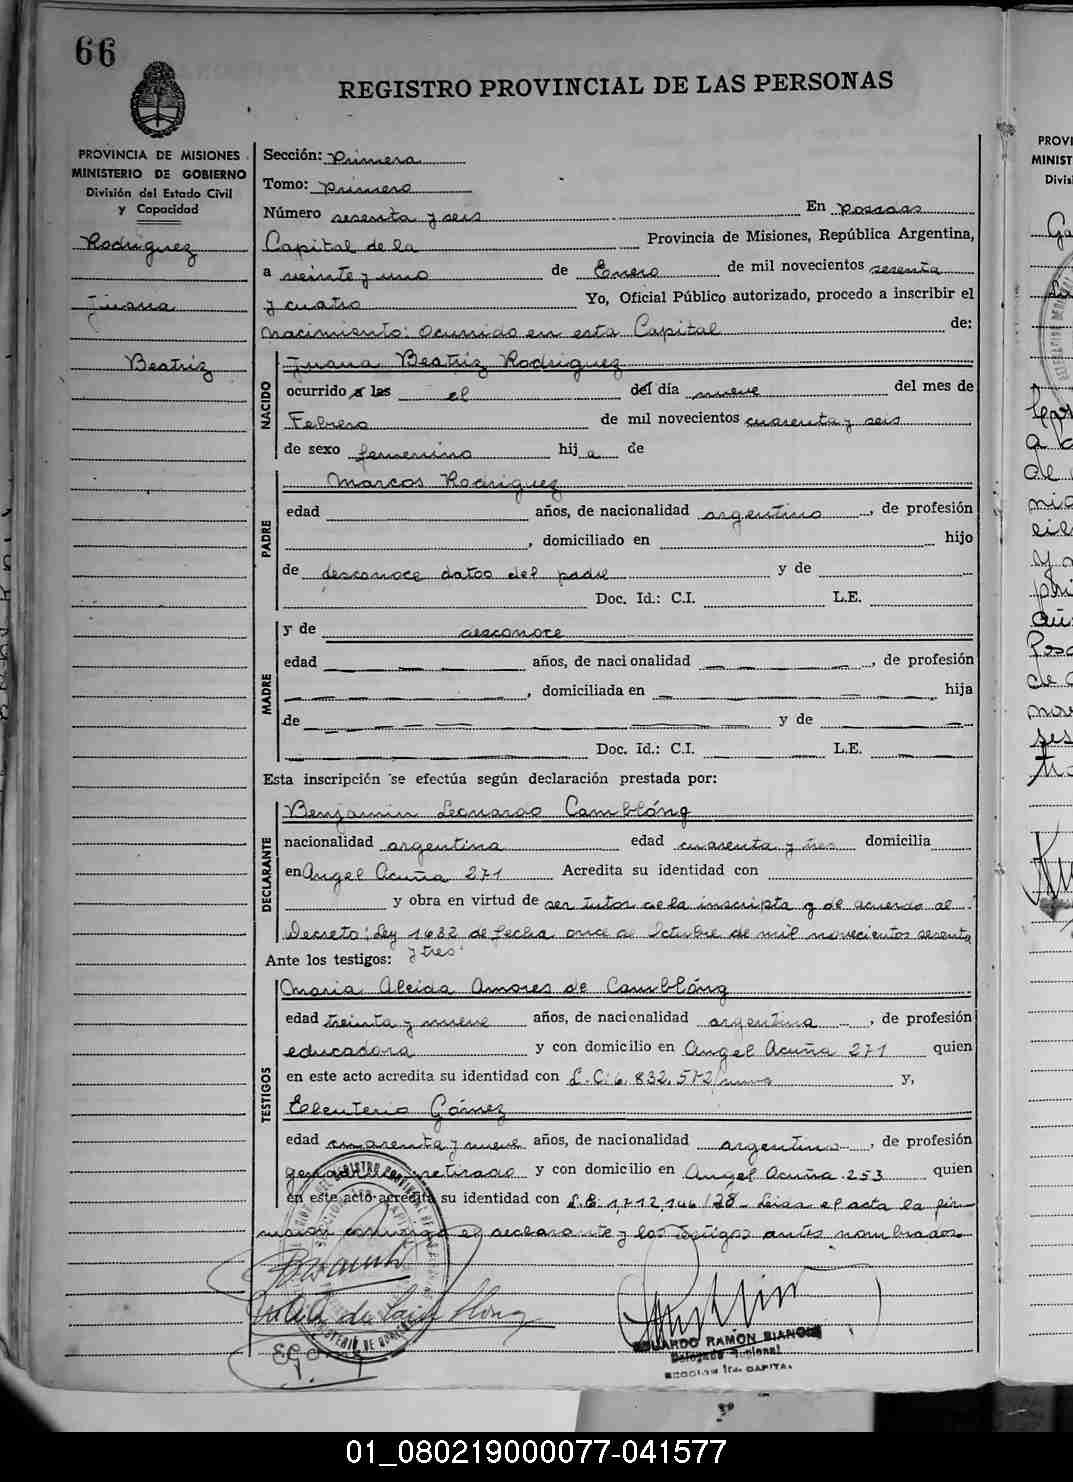 66
REGISTRO PROVINCIAL DE LAS PERSONAS
PROVINCIA DE MISIONES
MINISTERIO DE GOBIERNO
División del Estado Civil
y Capacidad
Rodriguez
Juana
Beatriz
Sección: Primera
Tomo: Primero
Número sesenta y seis En Posadas
Capital de la Provincia de Misiones, República Argentina,
a veinte y uno de Enero de mil novecientos sesenta
y cuatro Yo, Oficial Público autorizado, procedo a inscribir el
nacimiento: ocurrido en esta Capital de:
NACIDO
Juana Beatriz Rodriguez
ocurrido a las el del día nueve del mes de
Febrero de mil novecientos cuarenta y seis
de sexo femenino hij a de
PADRE
Marcos Rodriguez
edad años, de nacionalidad argentino, de profesión
, domiciliado en hijo
de desconoce datos del padre y de
Doc. Id.: C.I. L.E.
MADRE
y de desconoce
edad años, de nacionalidad , de profesión
, domiciliada en hija
de y de
Doc. Id.: C.I. L.E.
Esta inscripción se efectúa según declaración prestada por:
DECLARANTE
Benjamin Leonardo Camblóng
nacionalidad argentina edad cuarenta y tres domicilia
en Angel Acuña 271 Acredita su identidad con
y obra en virtud de ser tutor de la inscripta y de acuerdo al
Decreto: Ley 1632 de fecha once de Octubre de mil novecientos sesenta
y tres
Ante los testigos:
TESTIGOS
Maria Aleida Amores de Camblóng
edad treinta y nueve años, de nacionalidad argentina, de profesión
educadora y con domicilio en Angel Acuña 271 quien
en este acto acredita su identidad con L.C. 6.832.572 y,
Eleuterio Gómez
edad cuarenta y nueve años, de nacionalidad argentino, de profesión
retirado y con domicilio en Angel Acuña 253 quien
en este acto acredita su identidad con L.E. 1.712.146/28- Leida el acta la fir-
maron conmigo el declarante y los testigos antes nombrados
EDUARDO RAMÓN BIANCHI
Delegado
SECCION 1ra. CAPITAL
01_080219000077-041577